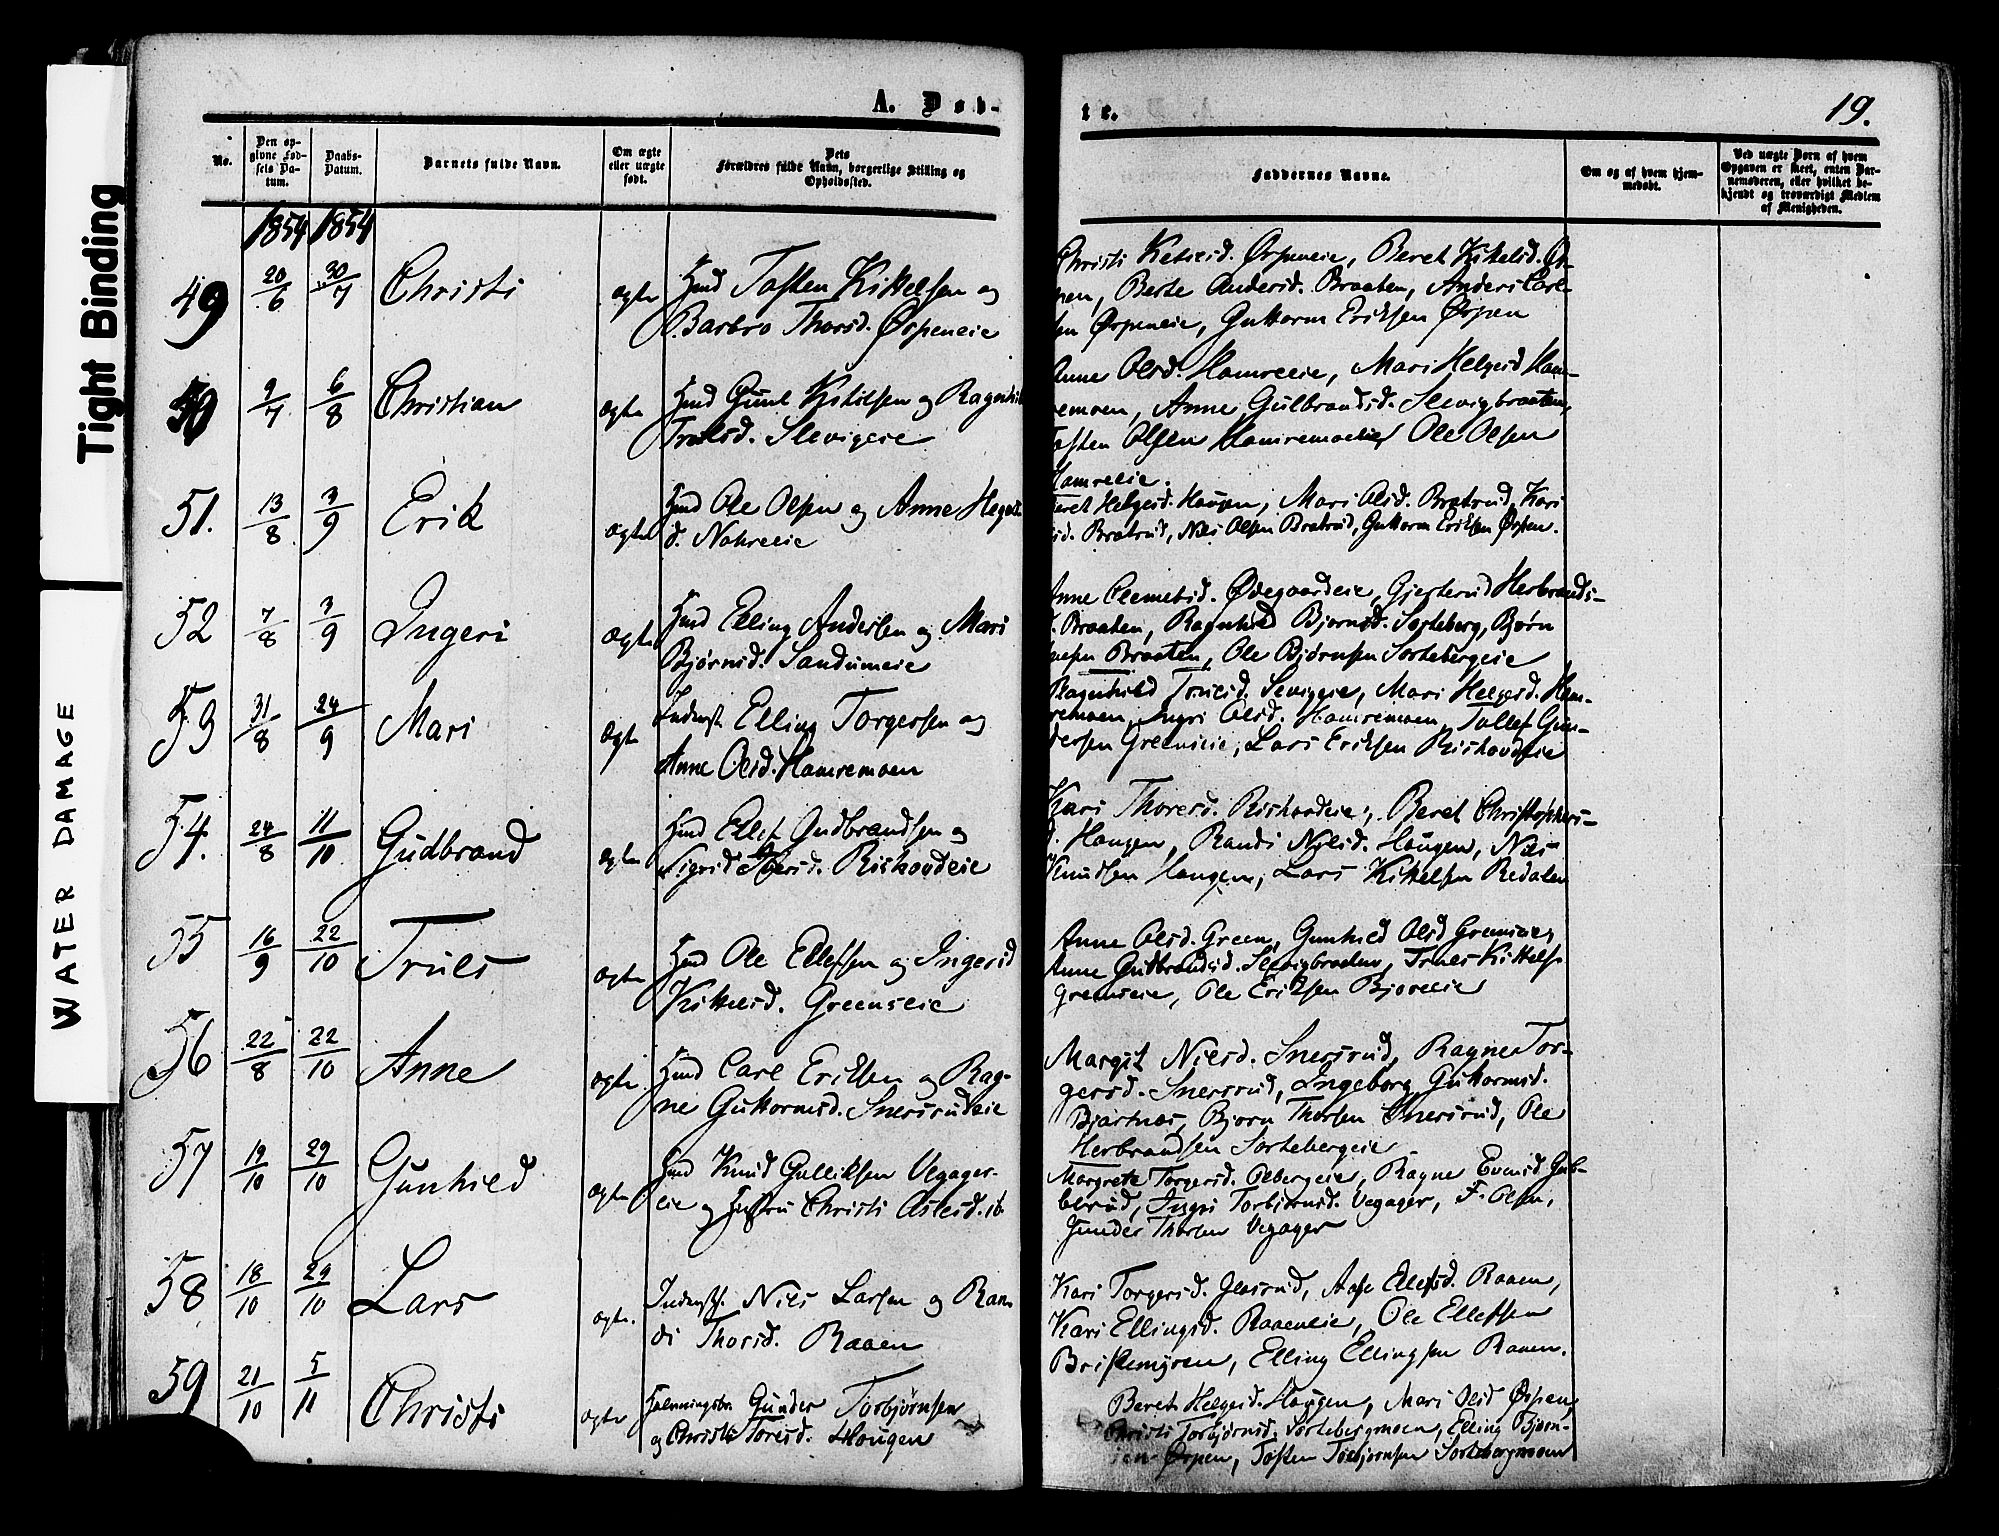 A. Døb-
te.
19.
No.
Den op-
givne Fød-
sels Da-
tum.
Daabs-
Datum.
Barnets fulde Navn.
Om ægte
eller uægte
født.
Dets
Forældres fulde Navn, borgerlige Stilling og
Opholdssted.
Faddernes Navne.
Om og af hvem hjem-
medøbt.
Ved uægte Børn af hvem
Opgaven er skeet, enten Bar-
nemoderen, eller hvilket be-
kjendt og troværdigt Medlem
af Menigheden.
Tight Binding
WATER DAMAGE
1854 1854
49 20/6 30/7 Christi ægte Hmd Tosten Kittelsen og
Barbro Thorsd. Ørpeneie
Christi Ketilsd. Ørpeneie, Beret Kittelsd. Ør-
pen, Berte Andersd. Braaten, Anders Carl-
sen Ørpeneie, Guttorm Eriksen Ørpen
50 9/7 6/8 Christian ægte Hmd Gunt Kittilsen og Ragnhild
Truelsd. Slevigeie
Anne Olsd. Hamreeie, Mari Helgesd Ham-
remoen, Anne Gulbrandsd. Slevigbraaten,
Tosten Olsen Hamremoeie, Ole Olsen
Hamreeie.
51. 13/8 3/9 Erik ægte Hmd Ole Olsen og Anne Heges
d. Nahreeie
Beret Helgesd. Haugen, Mari Olsd. Bratrud, Kari
sd. Bratrud, Niels Olsen Bratrud, Guttorm Eriksen Ørpen.
52 7/8 3/9 Ingeri ægte Hmd Elling Andersen og Mari
Bjørnsd. Sandumeie
Anne Clemetsd. Ødegaardeie, Gjertrud Herbrands-
d. Braaten, Ragnhild Bjornsd. Sorteberg, Bjørn
Braaten, Ole Bjørnsen Sortebergeie
53 31/8 24/9 Mari ægte Inderst. Elling Torgersen og
Anne Olsd. Hamremoen
Ragnhild Truelsd. Slevigeie, Mari Helgesd. Ham-
remoen, Ingri Olsd. Hamremoen, Tollef Gun-
dersen Greenseie, Lars Eriksen Rishovdeie
54. 24/8 11/10 Gudbrand ægte Hmd Ellef Gudbrandsen og
Sigrid Iversd. Rishovdeie
Kari Thoresd. Rishovdeie, Beret Christophers-
d. Haugen, Randi Nilsd. Haugen, Niels
Knudsen Haugen, Lars Kittelsen Redalen
55 16/9 22/10 Truls ægte Hmd Ole Ellefsen og Ingerid
Kittelsd. Greenseie
Anne Olsd. Green, Gunhild Olsd Greenseie,
Anne Gudbrandsd. Slevigbraaten, Truls Kittels.
Greenseie, Ole Eriksen Bjoreeie
56 22/8 22/10 Anne ægte. Hmd Carl Eriksen og Rag-
ne Guttormsd. Snersrudeie
Margit Nielsd. Snersrud, Ragne Tor-
gersd. Snersrud, Ingeborg Guttormsd.
Bjørtnes, Bjorn Thorsen Snersrud, Ole
Herbrandsen Sortebergeie.
57 19/10 29/10 Gunhild ægte Hmd Knud Gulliksen Vegager-
eie og Hustru Christi Aslesd. ib.
Margrete Torgersd. Olbergeie, Ragne Evensd. Gub-
berud, Ingri Torbjørnsd. Vegager, F. Olsen,
Gunder Thorsen Vegager
58 18/10 29/10 Lars ægte. Inderst. Niels Larsen og Ran
di Thorsd. Raaen
Kari Torgersd. Glesrud, Aase Ellefsd. Raaen,
Kari Ellingsd. Raaeneie, Ole Ellefsen
Briskemyren, Elling Ellingsen Raaen.
59 21/10 5/11 Christi ægte Helningsbr. Gunder Torbjørnsen
og Christi Toresd. Hougen
Beret Helgesd. Haugen, Mari Olsd Ørpen,
Christi Torbjørnsd. Sortebergmoen, Elling Bjørn-
sen Ørpen, Tosten Torbjornsen Sortebergmoen